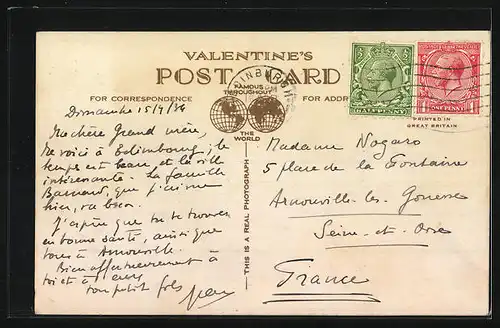 VALENTINE'S
POST CARD
FAMOUS
THROUGHOUT
THE
WORLD
FOR CORRESPONDENCE
FOR ADDRESS
PRINTED IN
GREAT BRITAIN
THIS IS A REAL PHOTOGRAPH
EDINBURGH
HALFPENNY
ONE PENNY
Dimanche 15/9/34
Ma chère Grand mère,
Me voici à Edimbourg; le
temps est beau, et la ville
intéressante. La famille
Barnaud, que j'ai vue
hier, va bien.
J'espère que tu te trouves
en bonne santé, ainsi que
tous à Arnouville.
Bien affectueusement à
toi et à eux
ton petit fils Jean
Madame Nogaro
5 place de la Fontaine
Arnouville-les-Gonesse
Seine-et-Oise
France